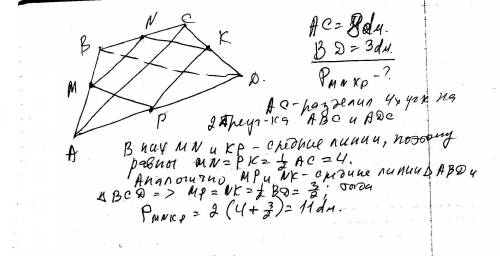 N C
B K
M D.
P
A
AC = 8дм.
BD = 3дм.
P MNKP - ?
AC - разделил 4х уг-к на
2 треуг-ка ABC и ADC
В них MN и KP - средние линии, поэтому
равны MN = PK = 1/2 AC = 4.
Аналогично MP и NK - средние линии △ ABD и
△ BCD => MP = NK = 1/2 BD = 3/2; тогда
P MNKP = 2 (4 + 3/2) = 11 дм.